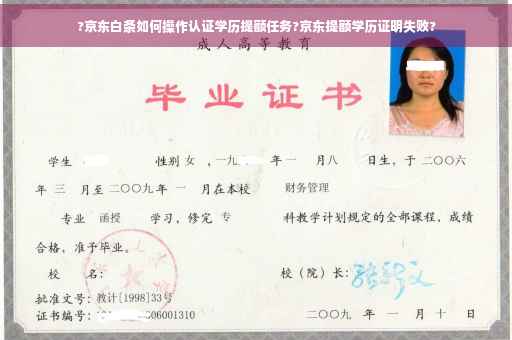 ?京东白条如何操作认证学历提额任务?京东提额学历证明失败?
成人高等教育
毕业证书
学生 性别 女 ，一九 年 一 月八 日生，于二〇〇六
年 三 月至二〇〇九年 一 月在本校 财务管理
专业 函授 学习，修完 专 科教学计划规定的全部课程，成绩
合格，准予毕业。
校 名： 校（院）长：
批准文号：教计[1998]33号
证书编号： 06001310 二〇〇九 年 一 月 十 日